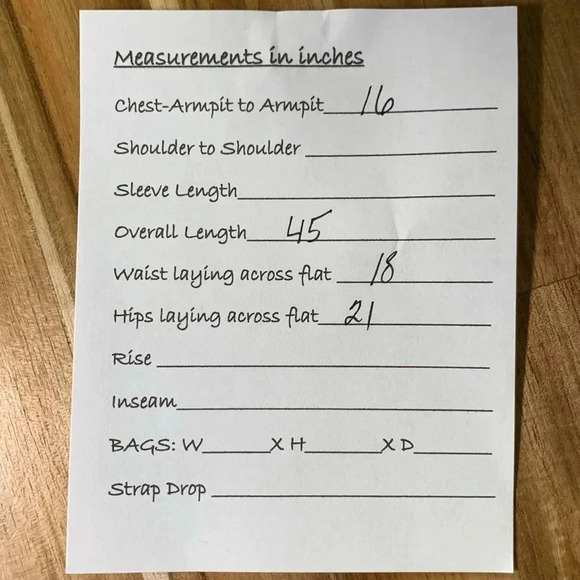 Measurements in inches
Chest-Armpit to Armpit 16
Shoulder to Shoulder
Sleeve Length
Overall Length 45
Waist laying across flat 18
Hips laying across flat 21
Rise
Inseam
BAGS: W______X H______X D______
Strap Drop